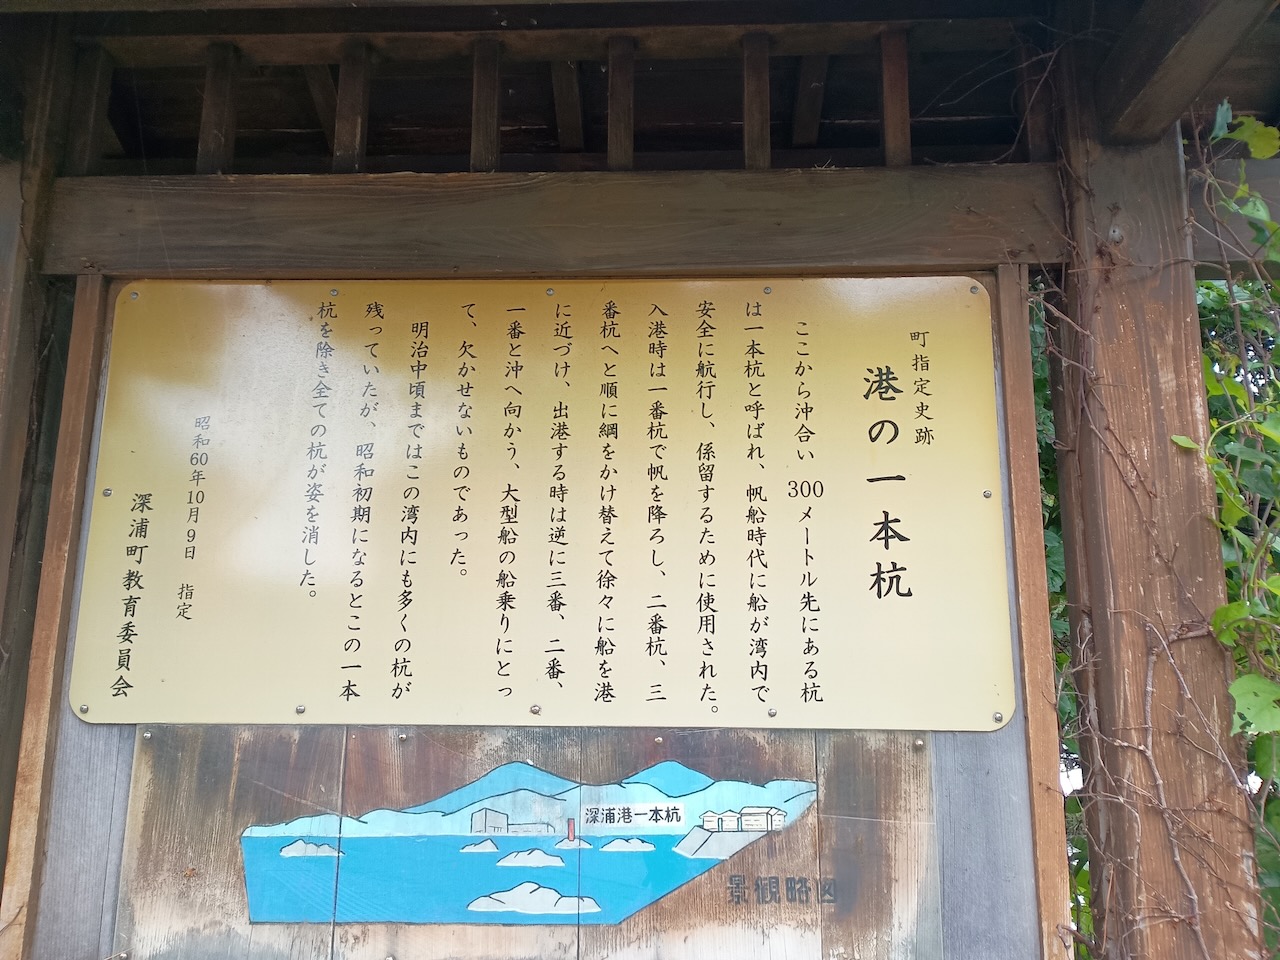 町指定史跡
港の一本杭
ここから沖合い300メートル先にある杭
は一本杭と呼ばれ、帆船時代に船が湾内で
安全に航行し、係留するために使用された。
入港時は一番杭で帆を降ろし、二番杭、三
番杭へと順に綱をかけ替えて徐々に船を港
に近づけ、出港する時は逆に三番、二番、
一番と沖へ向かう、大型船の船乗りにとっ
て、欠かせないものであった。
明治中頃まではこの湾内にも多くの杭が
残っていたが、昭和初期になるとこの一本
杭を除き全ての杭が姿を消した。
昭和60年10月9日 指定
深浦町教育委員会
深浦港一本杭
景観略図